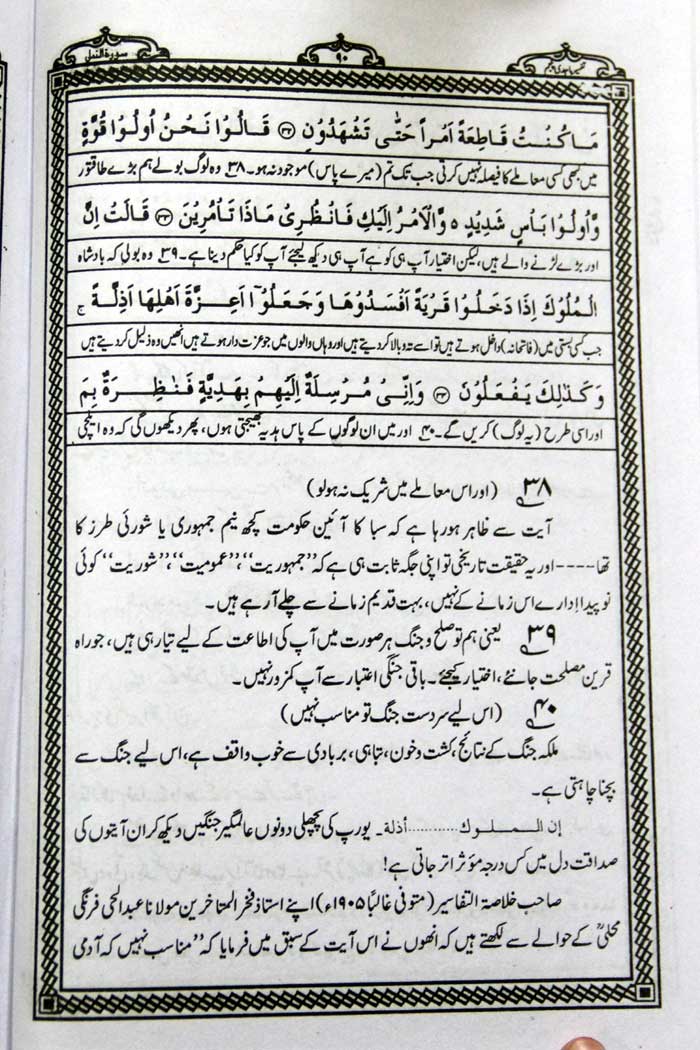 تفسیر ماجدی پنجم
۹۰
سورۃ النمل
مَا كُنْتُ قَاطِعَةً اَمْراً حَتّٰى تَشْهَدُوْنِ ﴿۳۲﴾ قَالُوْا نَحْنُ اُولُوْا قُوَّةٍ
میں بھی کسی معاملے کا فیصلہ نہیں کرتی جب تک تم (میرے پاس) موجود نہ ہو۔ ۳۸ وہ لوگ بولے ہم بڑے طاقتور
وَّاُولُوْا بَاْسٍ شَدِيْدٍ ۵ وَّالْاَمْرُ اِلَيْكِ فَانْظُرِىْ مَاذَا تَاْمُرِيْنَ ﴿۳۳﴾ قَالَتْ اِنَّ
اور بڑے لڑنے والے ہیں، لیکن اختیار آپ ہی کو ہے آپ ہی دیکھ لیجئے آپ کو کیا حکم دینا ہے۔ ۳۹ وہ بولی کہ بادشاہ
الْمُلُوْكَ اِذَا دَخَلُوْا قَرْيَةً اَفْسَدُوْهَا وَجَعَلُوْٓا اَعِزَّةَ اَهْلِهَا اَذِلَّةً ج
جب کسی بستی میں (فاتحانہ) داخل ہوتے ہیں تو اسے تہ و بالا کردیتے ہیں اور وہاں والوں میں جو عزت دار ہوتے ہیں انھیں وہ ذلیل کردیتے ہیں
وَكَذٰلِكَ يَفْعَلُوْنَ ﴿۳۴﴾ وَاِنِّىْ مُرْسِلَةٌ اِلَيْهِمْ بِهَدِيَّةٍ فَنٰظِرَةٌ بِمَ
اور اسی طرح (یہ لوگ) کریں گے۔ ۴۰ اور میں ان لوگوں کے پاس ہدیہ بھیجتی ہوں، پھر دیکھوں گی کہ وہ ایلچی
۳۸ (اور اس معاملے میں شریک نہ ہولو)
آیت سے ظاہر ہورہا ہے کہ سبا کا آئین حکومت کچھ نیم جمہوری یا شورئی طرز کا
تھا ---- اور یہ حقیقت تاریخی تو اپنی جگہ ثابت ہی ہے کہ ’’جمہوریت‘‘، ’’عمومیت‘‘، ’’شوریت‘‘ کوئی
نو پیدا ادارے اس زمانے کے نہیں، بہت قدیم زمانے سے چلے آرہے ہیں۔
۳۹ یعنی ہم تو صلح و جنگ ہر صورت میں آپ کی اطاعت کے لیے تیار ہی ہیں، جو راہ
قرین مصلحت جانئے، اختیار کیجئے۔ باقی جنگی اعتبار سے آپ کمزور نہیں۔
۴۰ (اس لیے سردست جنگ تو مناسب نہیں)
ملکہ جنگ کے نتائج، کشت و خون، تباہی، بربادی سے خوب واقف ہے، اس لیے جنگ سے
بچنا چاہتی ہے۔
إن الملوك............أذلة۔ یورپ کی پچھلی دونوں عالمگیر جنگیں دیکھ کر ان آیتوں کی
صداقت دل میں کس درجہ مؤثر اتر جاتی ہے!
صاحب خلاصۃ التفاسیر (متوفی غالباً ۱۹۰۵ء) اپنے استاذ فخر المتاخرین مولانا عبدالحی فرنگی
محلیؒ کے حوالے سے لکھتے ہیں کہ انھوں نے اس آیت کے سبق میں فرمایا کہ ’’مناسب نہیں کہ آدمی